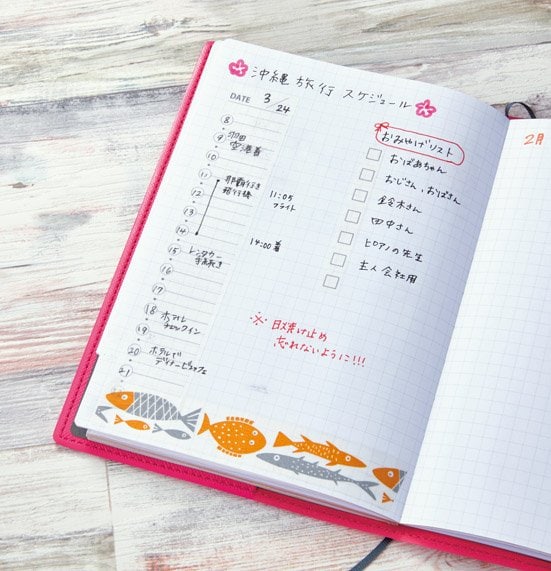 沖縄旅行 スケジュール
DATE 3/24
8
9 羽田
空港着
10
11 那覇行き
飛行機
11:05
フライト
12
13
14
14:00 着
15 レンタカー
手続き
16
17
18 ホテル
チェックイン
19
20 ホテルで
ディナービュッフェ
21
おみやげリスト
おばあちゃん
おじさん、おばさん
鈴木さん
田中さん
ピアノの先生
主人会社用
※ 日焼け止め
忘れないように!!!
2月